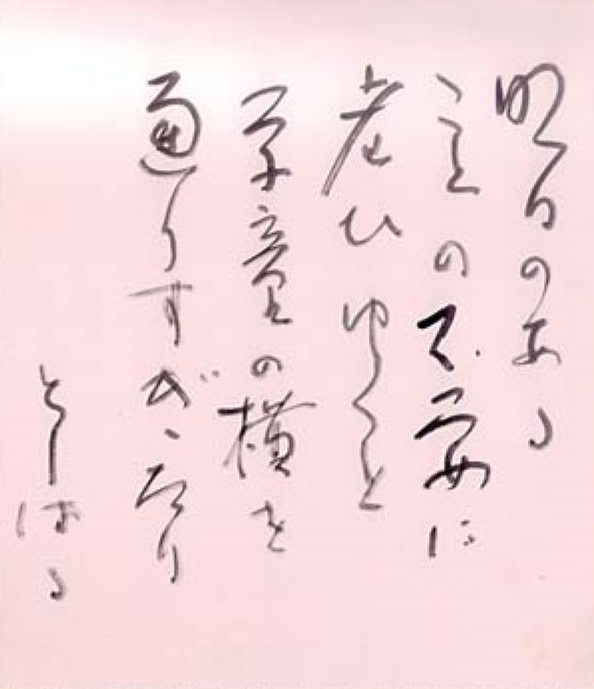 明日のある
ことの不安に
老ひゆくと
学童の横を
通りすぎたり
としはる